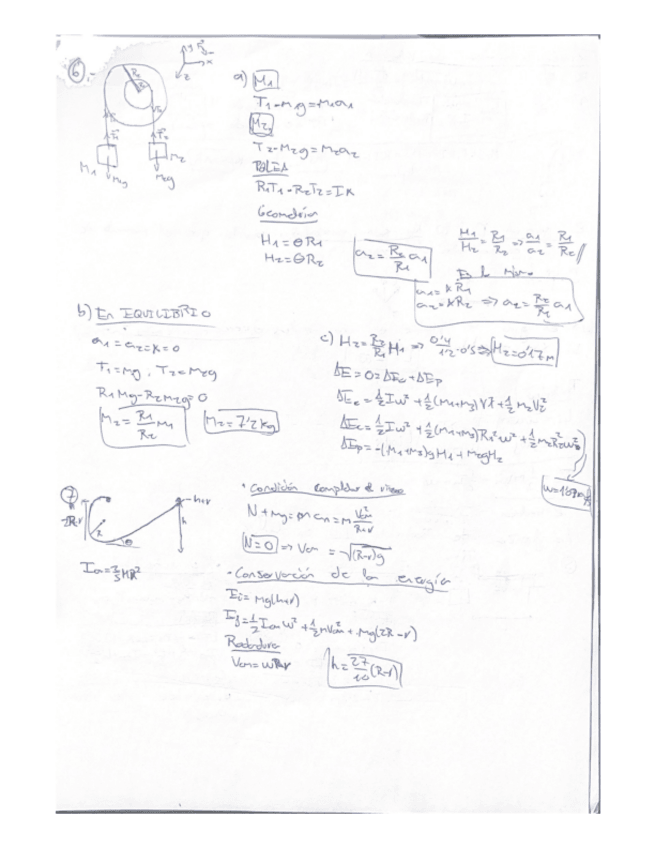 6.-
y
x
z
R₂
T₁
T₂
M₁
M₁g
M₂
M₂g
a) M₁
T₁-M₁g=M₁a₁
M₂
T₂-M₂g=M₂a₂
POLEA
R₁T₁-R₂T₂=Iα
Geometría
H₁=θR₁
H₂=θR₂
a₂=R₂/R₁ a₁
H₁/H₂=R₁/R₂ => a₁/a₂=R₁/R₂
Es lo mismo
a₁=αR₁
a₂=αR₂ => a₂=R₂/R₁ a₁
b) En EQUILIBRIO
a₁=a₂=α=0
T₁=M₁g, T₂=M₂g
R₁M₁g-R₂M₂g=0
M₂=R₁/R₂ M₁
M₂=7'2kg
c) H₂=R₂/R₁ H₁ => 0'4/1'2·0'5 => H₂=0'17m
ΔE=0=ΔEc+ΔEp
ΔEc=½Iω²+½(M₁+M₃)V₁²+½M₂V₂²
ΔEc=½Iω²+½(M₁+M₃)R₁²ω²+½M₂R₂²ω²
ΔEp=-(M₁+M₃)gH₁+M₂gH₂
7
h+r
h
R
θ
· Condición completar el rizo
N+Mg=m cn=m Vcm²/R-r
N=0 => Vcm=√(R-r)g
· Conservación de la energía
Ei=Mg(h+r)
Ef=½Icmω²+½MVcm²+Mg(2R-r)
Rodadura
h=27/10(R-r)